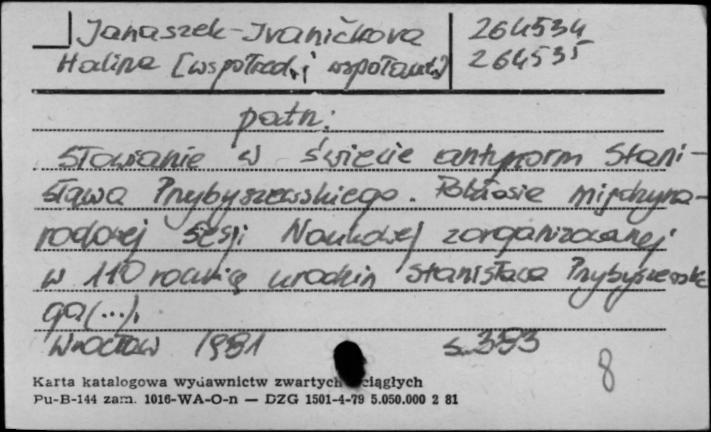 Janaszek-Ivaničkova 264534
Halina [współred. i współaut.] 264535
patrz:
Słowianie w świecie antynorm Stani-
sława Przybyszewskiego. Pokłosie międzyna-
rodowej Sesji Naukowej zorganizowanej
w 110 rocznicę urodzin Stanisława Przybyszewskie
go(...).
Wrocław 1981 s. 353
8
Karta katalogowa wydawnictw zwartych ciągłych
Pu-B-144 zam. 1016-WA-O-n — DZG 1501-4-79 5.050.000 2 81